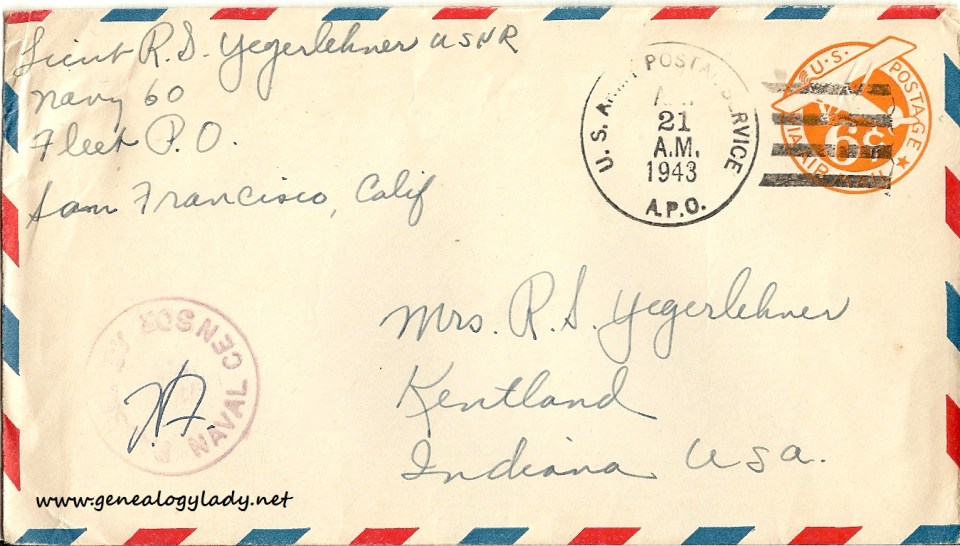 Lieut R.S. Yegerlehner USNR
Navy 60
Fleet P.O.
San Francisco, Calif
U.S. ARMY POSTAL SERVICE
21
A.M.
1943
A.P.O.
U.S. POSTAGE
6¢
VIA AIR
Mrs. R.S. Yegerlehner
Kentland
Indiana USA.
NAVAL CENSOR
www.genealogylady.net